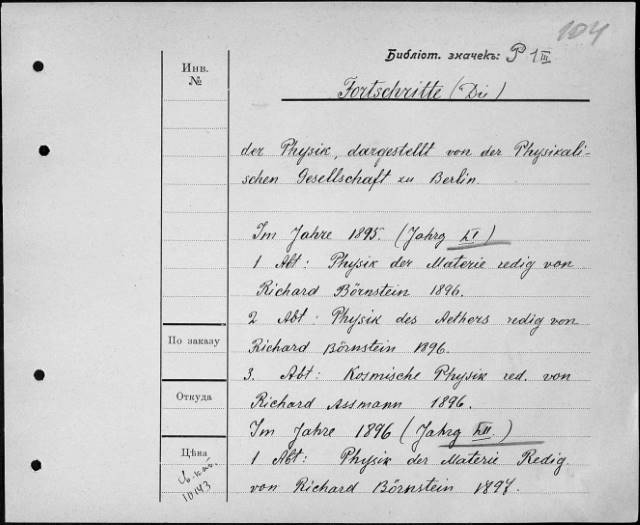 104
Библіот. значекъ: P 1 III
Инв.
№
Fortschritte (Die)
der Physik, dargestellt von der Physikali-
schen Gesellschaft zu Berlin.
Im Jahre 1895. (Jahrg LI)
1 Abt: Physik der Materie redig von
Richard Börnstein 1896.
2 Abt: Physik des Aethers redig von
По заказу
Richard Börnstein 1896.
3. Abt: Kosmische Physik red. von
Откуда
Richard Assmann 1896.
Im Jahre 1896 (Jahrg LII.)
Цѣна
1 Abt: Physik der Materie Redig.
10143
von Richard Börnstein 1897.